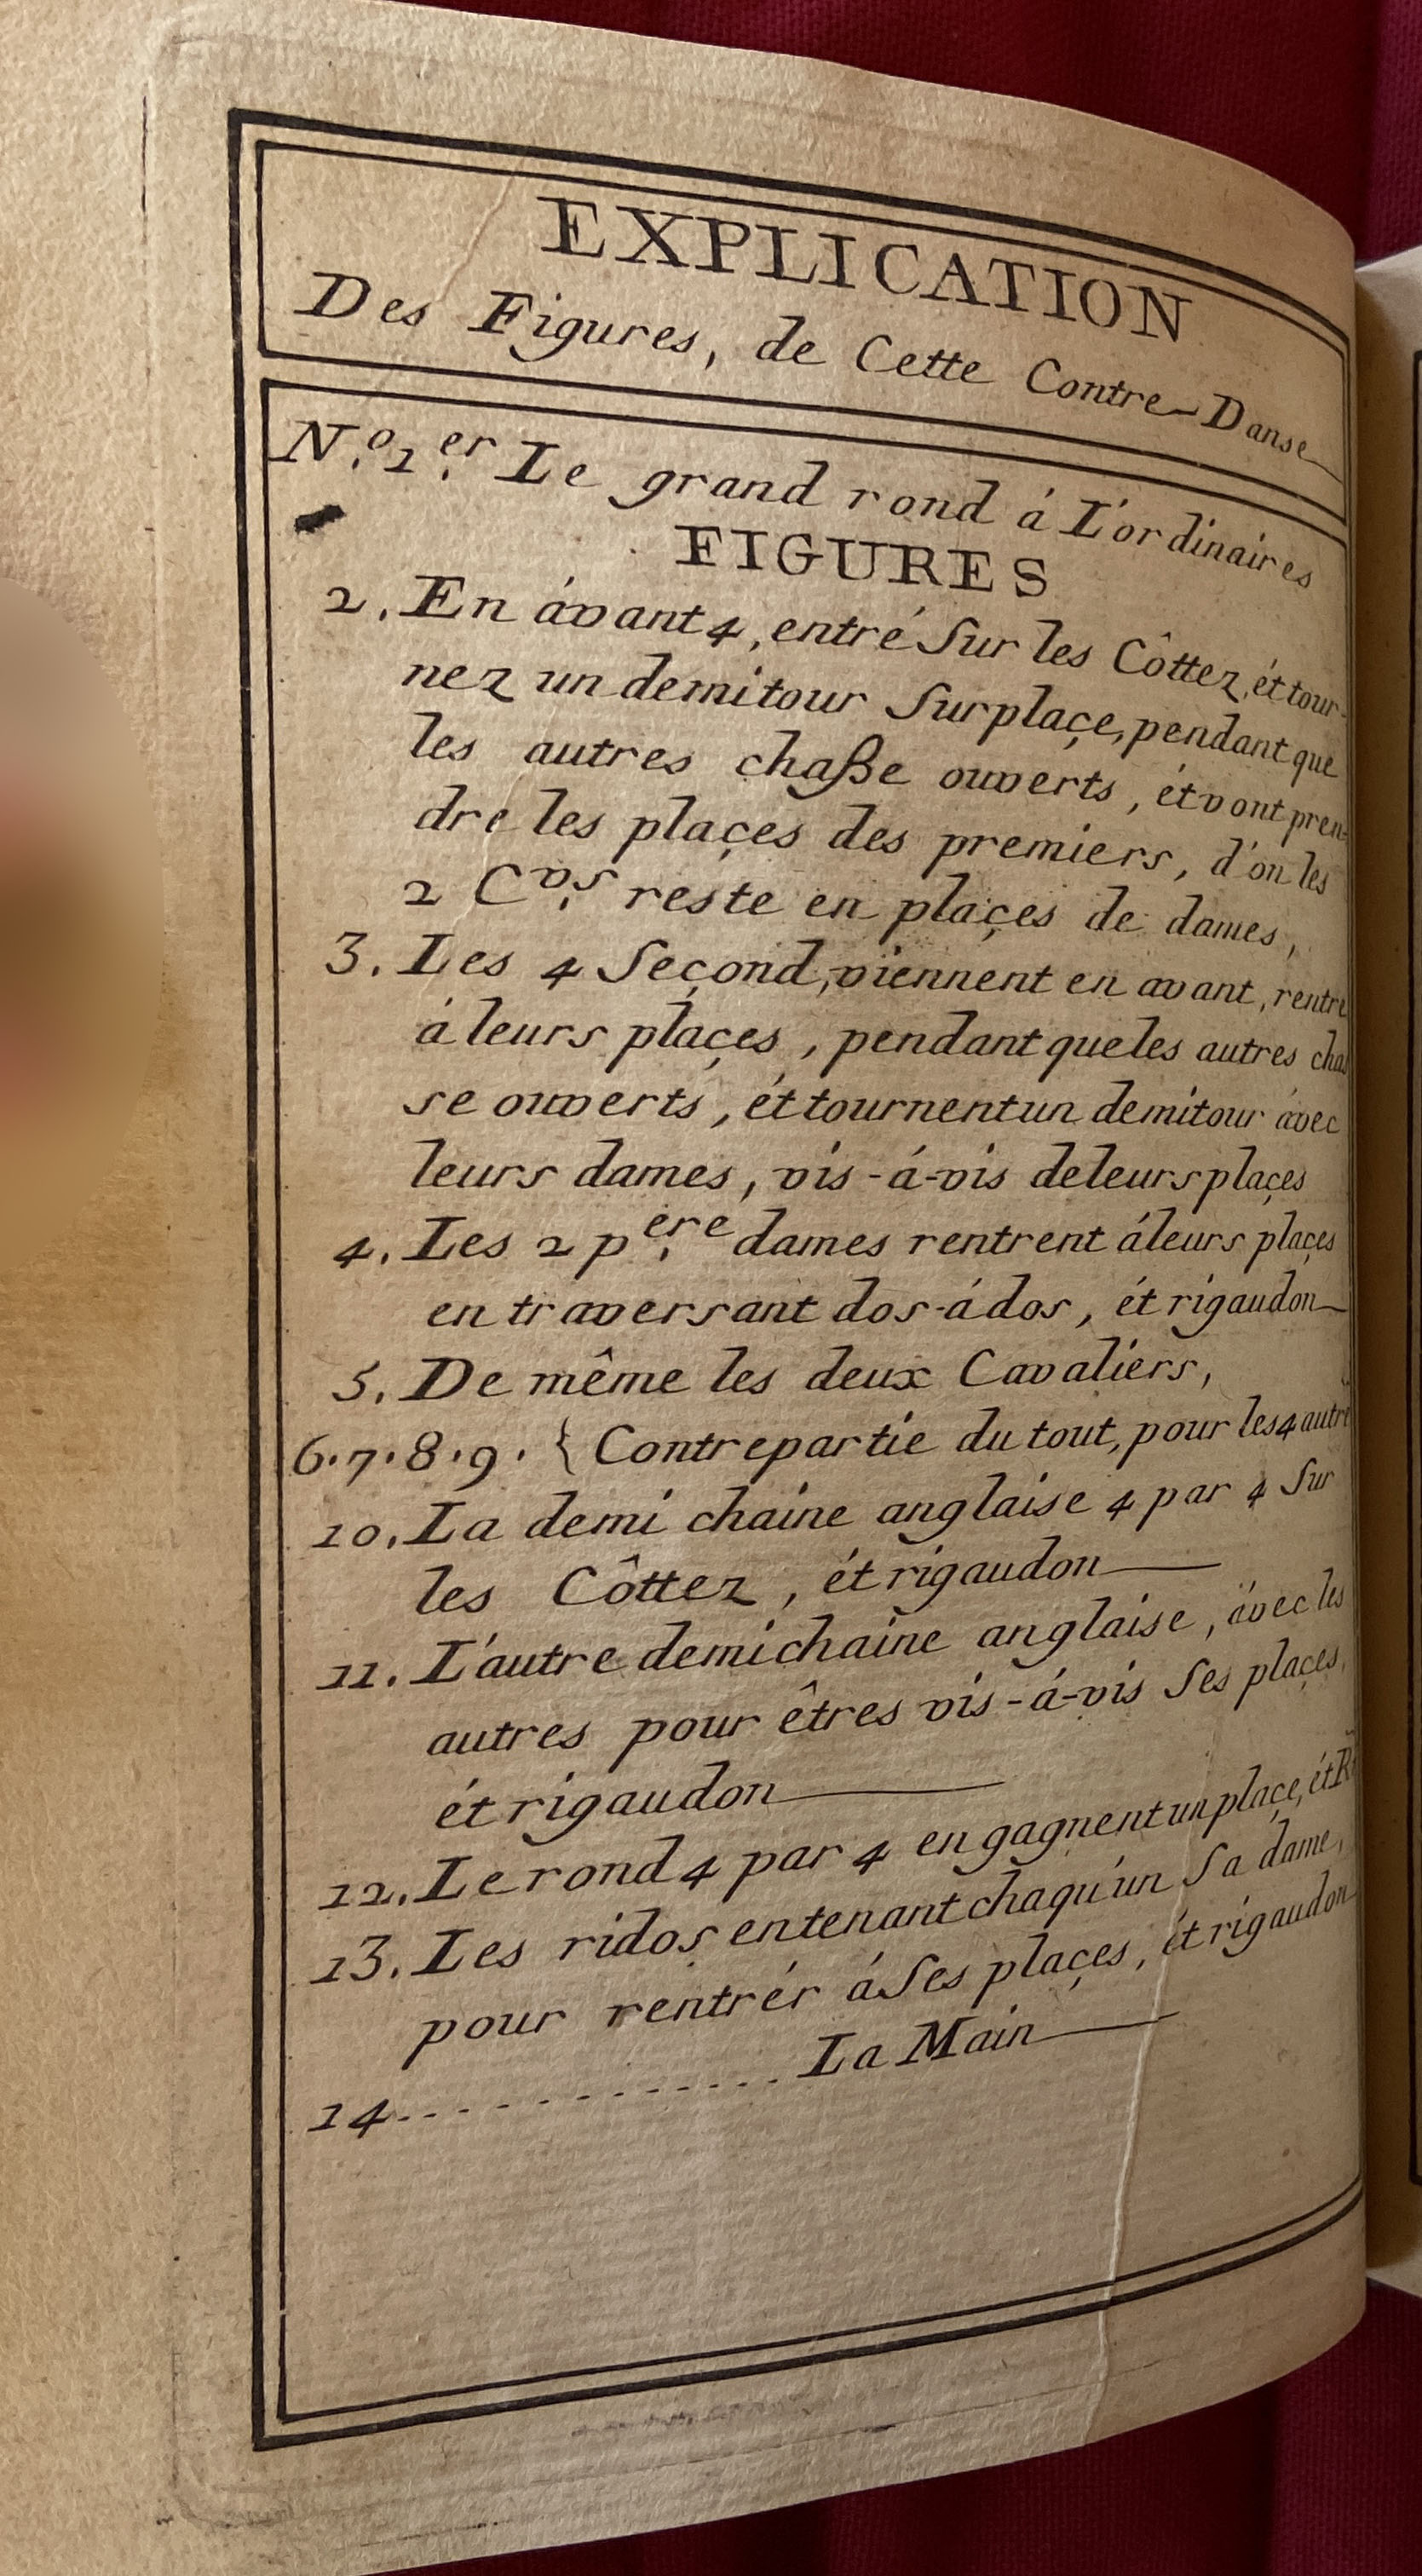 EXPLICATION
Des Figures, de Cette Contre-Danse
N.o 1.er Le grand rond á L'ordinaires
FIGURES
2. En ávant 4, entré Sur les Côttez, ét tour-
nez un demi tour Sur plaçe, pendant que
les autres chaße ouverts, ét vont pren-
dre les plaçes des premiers, d'on les
2 C.vs reste en plaçes de dames,
3. Les 4 Seçond, viennent en avant, rentre
á leurs plaçes, pendant que les autres chas
se ouverts, ét tournent un demi tour ávec
leurs dames, vis-á-vis de leurs plaçes
4. Les 2 p.ere dames rentrent á leurs plaçes
en traversant dos-á dos, ét rigaudon
5. De même les deux Cavaliers,
6.7.8.9. { Contrepartie du tout, pour les 4 autre
10. La demi chaine anglaise 4 par 4 Sur
les Côttez, ét rigaudon
11. L'autre demi chaine anglaise, ávec les
autres pour êtres vis-á-vis Ses plaçes,
ét rigaudon
12. Le rond 4 par 4 en gagnent un plaçe, ét R
13. Les ridos en tenant chaqu'un Sa dame,
pour rentrér á Ses plaçes, ét rigaudon
14............. La Main